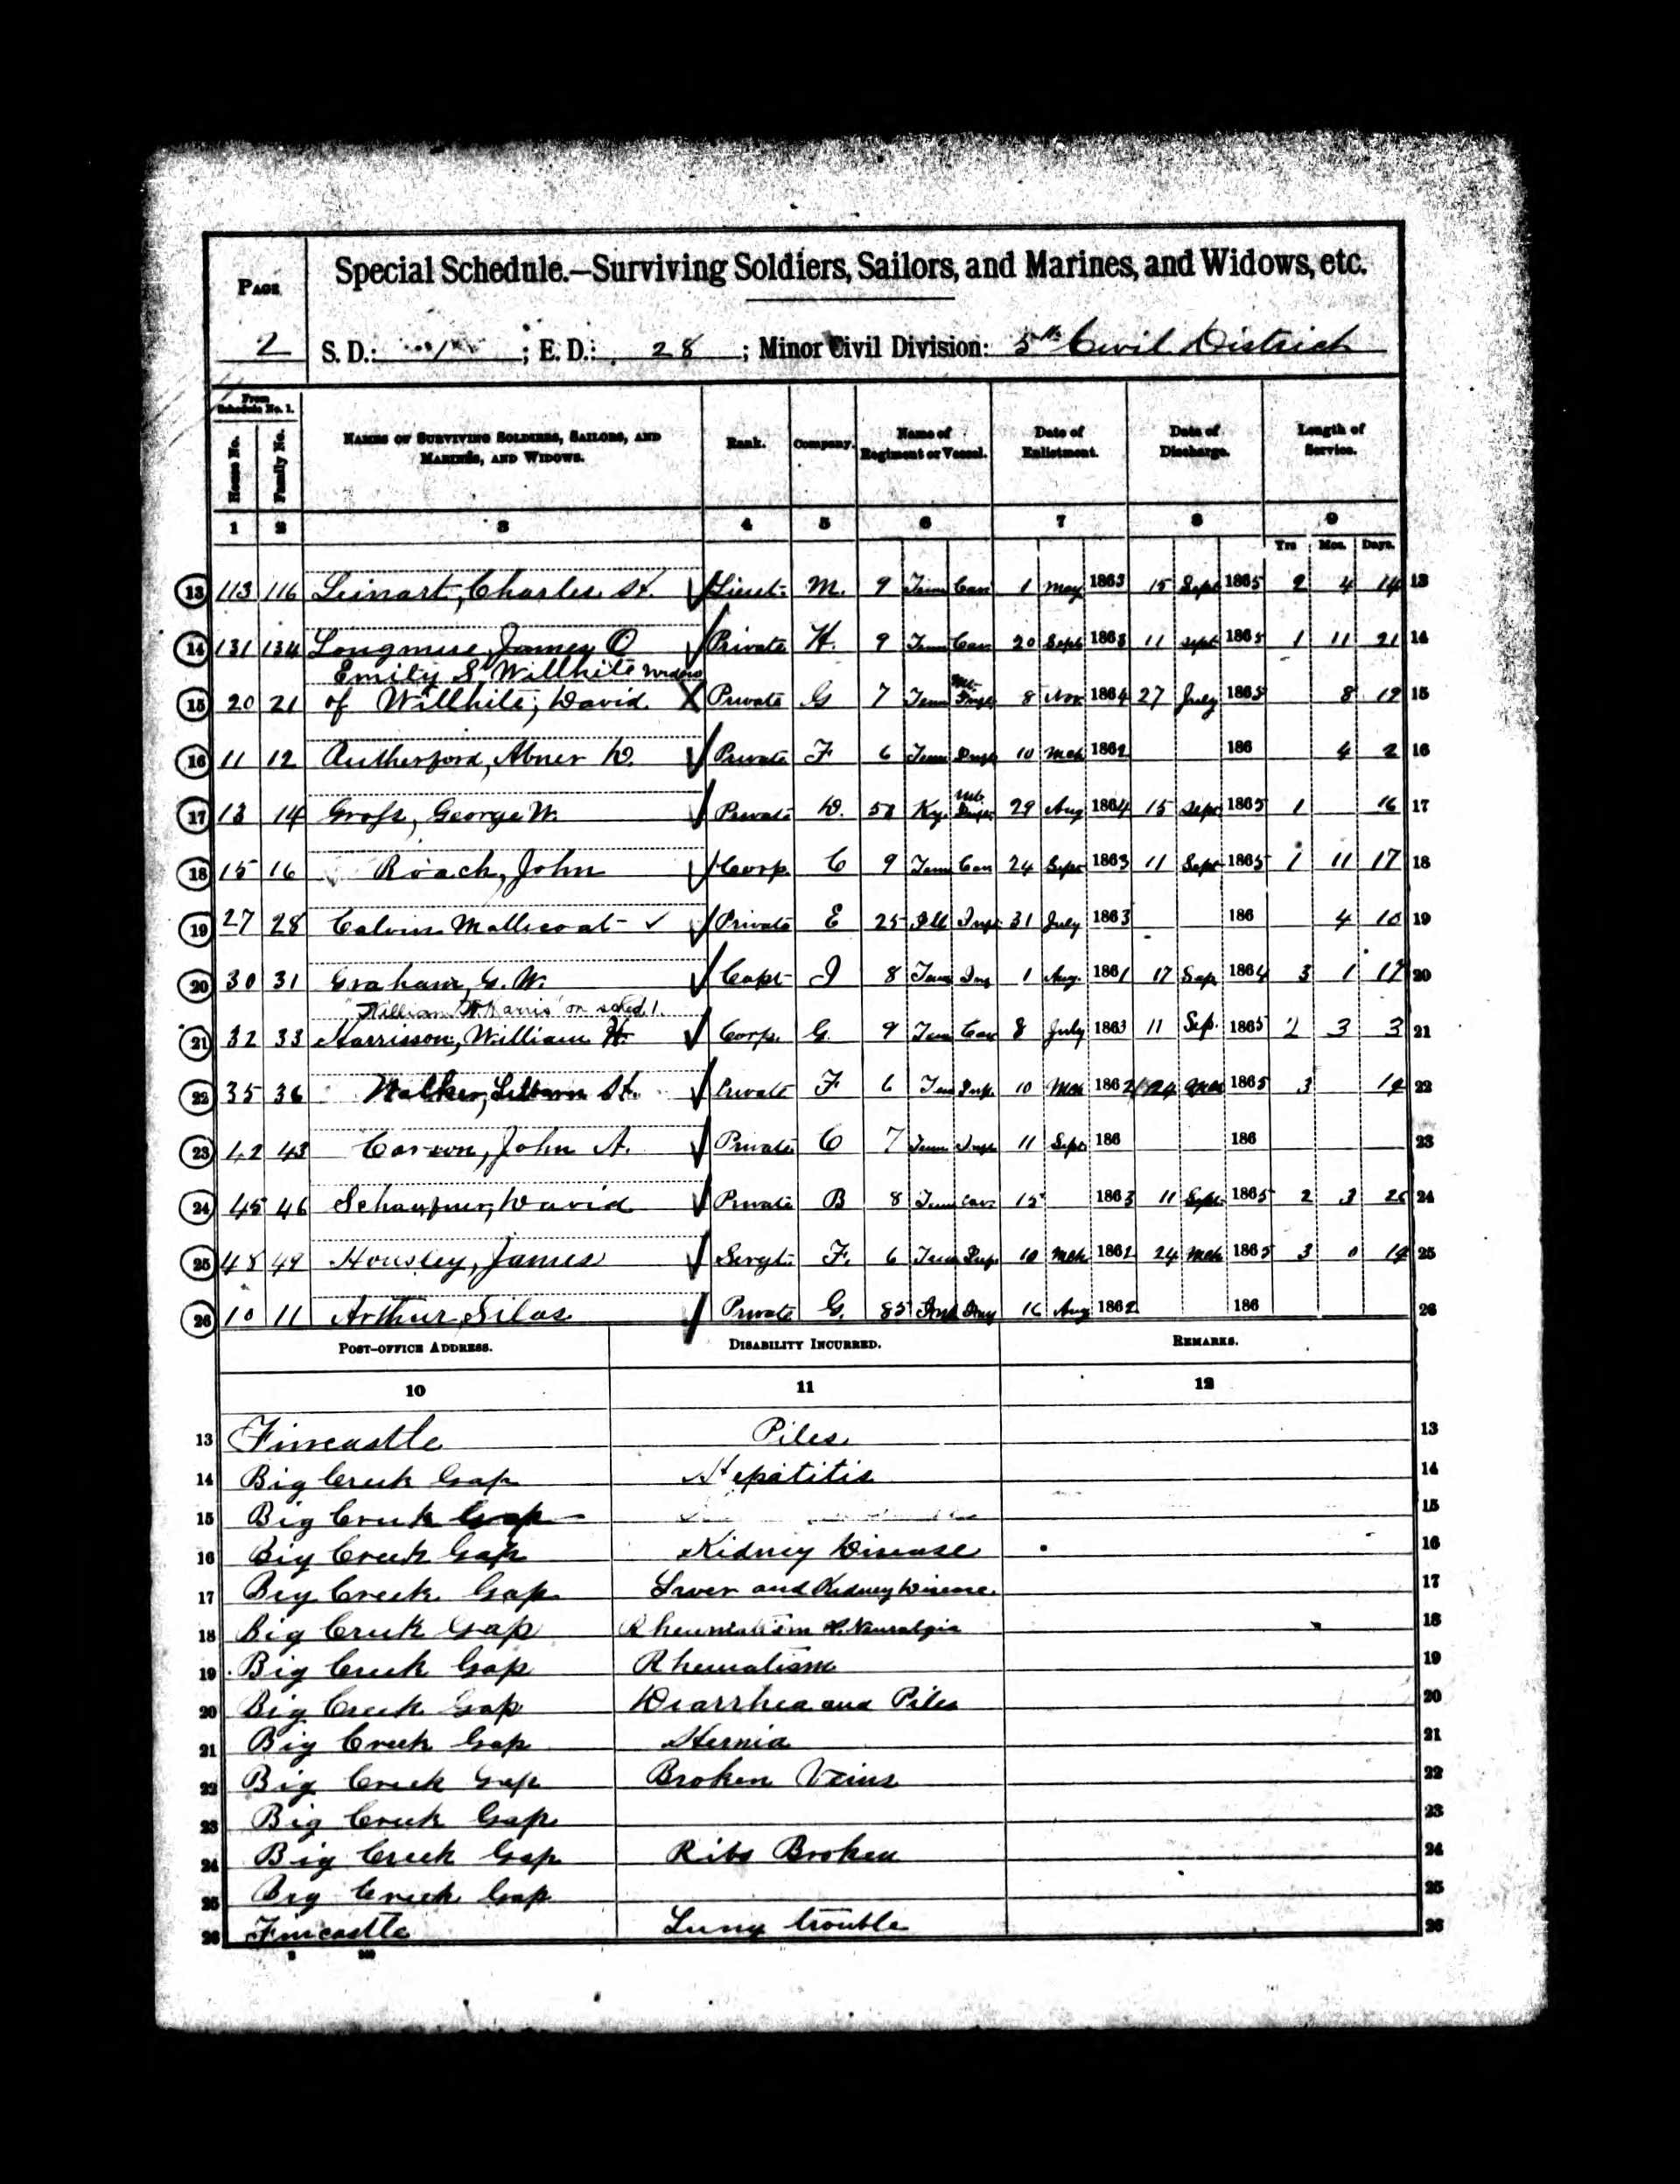 PAGE
2
Special Schedule.—Surviving Soldiers, Sailors, and Marines, and Widows, etc.
S. D.: 1 ; E. D.: 28 ; Minor Civil Division: 5th Civil District
From Schedule No. 1.
House No.
Family No.
NAMES OF SURVIVING SOLDIERS, SAILORS, AND MARINES, AND WIDOWS.
Rank.
Company.
Name of Regiment or Vessel.
Date of Enlistment.
Date of Discharge.
Length of Service.
1 2 3 4 5 6 7 8 9
Yrs Mos. Days.
13 113 116 Leinart, Charles H. Lieut. M. 9 Tenn Cav 1 May 1863 15 Sept 1865 2 4 14 13
14 131 134 Longmire, James O Private H. 9 Tenn Cav 20 Sept 1863 11 Sept 1865 1 11 21 14
Emily S. Willhite Widow
15 20 21 of Willhite, David X Private G 7 Tenn Mt. Inft 8 Nov 1864 27 July 1865 8 19 15
16 11 12 Rutherford, Abner D. Private F 6 Tenn Inft 10 Mch 1862 186 4 2 16
17 13 14 Gross, George W. Private D. Ky. Inft 29 Aug 1864 15 Sept 1865 1 16 17
18 15 16 Roach, John Corp. C 9 Tenn Cav 24 Sept 1863 11 Sept 1865 1 11 17 18
19 27 28 Calvin Mallicoat Private E 25 Ill Inft 31 July 1863 186 4 10 19
20 30 31 Graham, G. W. Capt I 8 Tenn Inf 1 Aug. 1861 17 Sep 1864 3 1 17 20
"William H Harris" on sched 1.
21 32 33 Harrisson, William H. Corp. G. 9 Tenn Cav 8 July 1863 11 Sep. 1865 2 3 3 21
22 35 36 Walker, H. Private F 6 Ten Inf. 10 Mch 1862 24 Mch 1865 3 14 22
23 42 43 Carson, John A. Private C 7 Tenn Inft 11 Sept 186 186 23
24 45 46 David Private B 8 Tenn Cav. 15 1863 11 Sept 1865 2 3 24
25 48 49 Housley, James Sergt. F. 6 Tenn Inf. 10 Mch 1862 24 Mch 1865 3 0 14 25
26 10 11 Arthur Silas Private G. 85 Ind Inf 16 Aug 1862 186 26
POST-OFFICE ADDRESS. DISABILITY INCURRED. REMARKS.
10 11 12
13 Fincastle Piles 13
14 Big Creek Gap Hepatitis 14
15 Big Creek Gap 15
16 Big Creek Gap Kidney Disease 16
17 Big Creek Gap Liver and Kidney Disease. 17
18 Big Creek Gap Rheumatism & Neuralgia 18
19 Big Creek Gap Rheumatism 19
20 Big Creek Gap Diarrhea and Piles 20
21 Big Creek Gap Hernia 21
22 Big Creek Gap Broken Veins 22
23 Big Creek Gap 23
24 Big Creek Gap Ribs Broken 24
25 Big Creek Gap 25
26 Fincastle Lung trouble 26